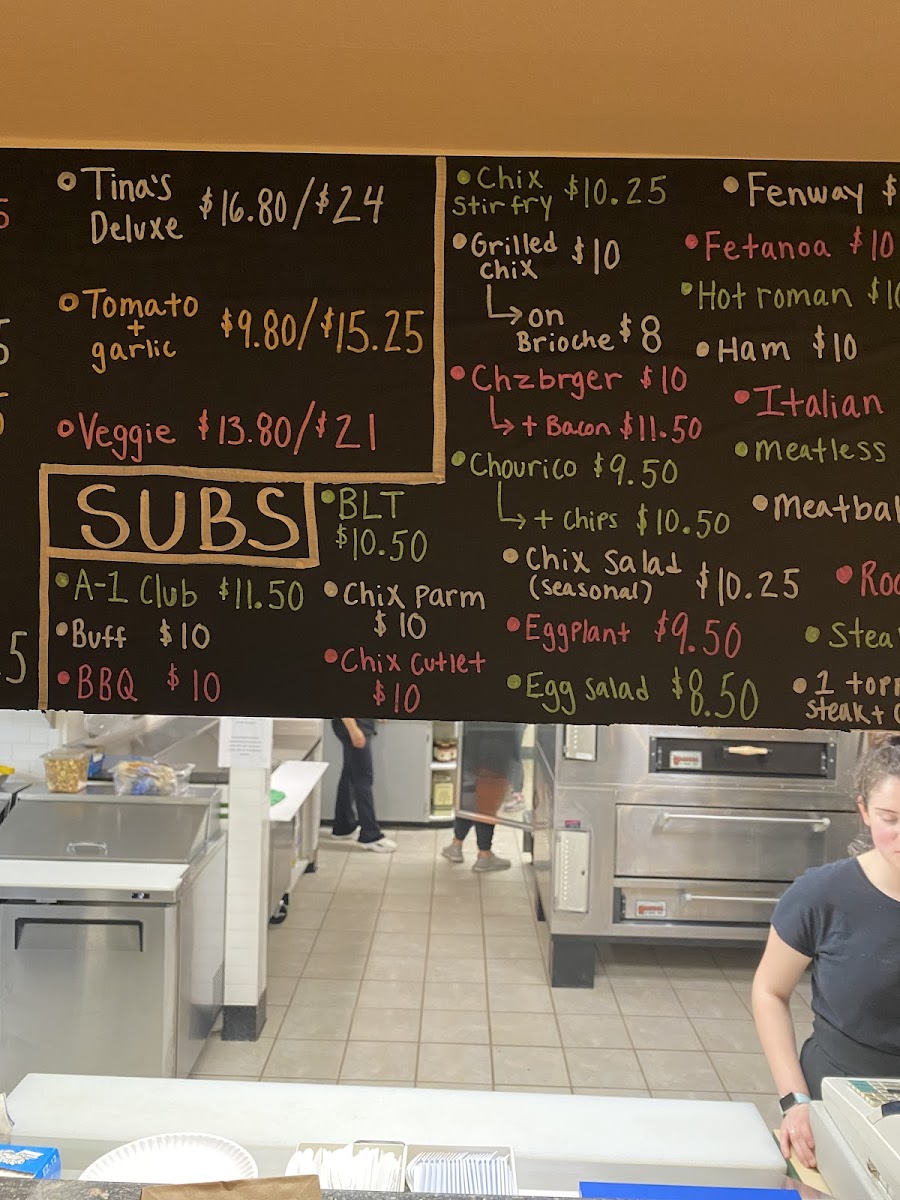 Tina's
Deluxe $16.80/$24
Tomato
+
garlic $9.80/$15.25
Veggie $13.80/$21
SUBS
A-1 Club $11.50
Buff $10
BBQ $10
BLT
$10.50
Chix Parm
$10
Chix Cutlet
$10
Chix
Stir fry $10.25
Grilled
Chix $10
on
Brioche $8
Chzbrger $10
+ Bacon $11.50
Chourico $9.50
+ Chips $10.50
Chix Salad
(seasonal) $10.25
Eggplant $9.50
Egg Salad $8.50
Fenway $
Fetanoa $10
Hot roman $10
Ham $10
Italian
Meatless
Meatbal
Roc
Stea
1 topp
Steak +
5
5
5
.5